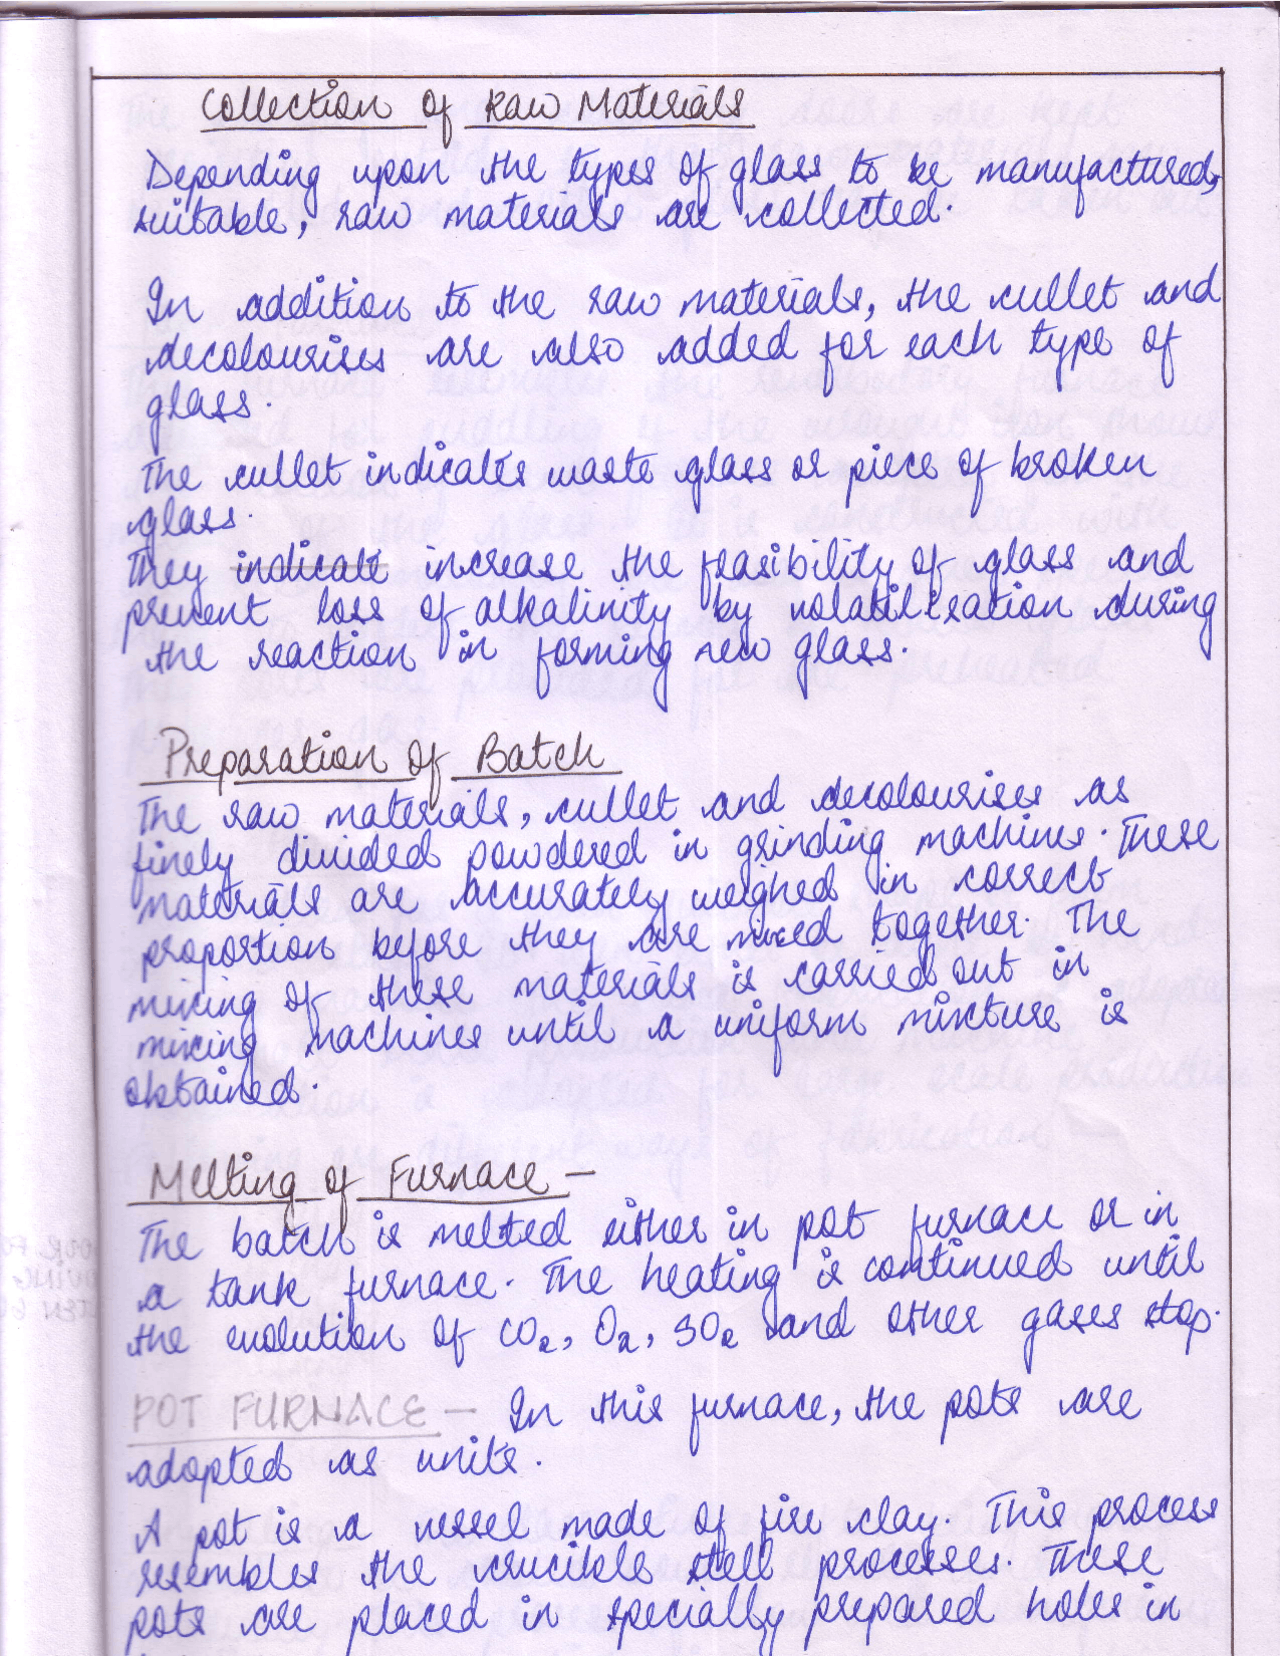 Collection of Raw Materials
Depending upon the types of glass to be manufactured,
suitable, raw materials are collected.
In addition to the raw materials, the cullet and
decolourises are also added for each type of
glass.
The cullet indicates waste glass or piece of broken
glass.
They indicate increase the feasibility of glass and
prevent loss of alkalinity by volatilisation during
the reaction in forming new glass.
Preparation of Batch
The raw materials, cullet and decolourises as
finely divided powdered in grinding machines. These
materials are accurately weighed in correct
proportion before they are mixed together. The
mixing of these materials is carried out in
mixing machines until a uniform mixture is
obtained.
Melting of Furnace -
The batch is melted either in pot furnace or in
a tank furnace. The heating is continued until
the evolution of CO2, O2, SO2 and other gases stop.
POT FURNACE - In this furnace, the pots are
adopted as units.
A pot is a vessel made of fire clay. This process
resembles the crucible stell processes. These
pots are placed in specially prepared holes in